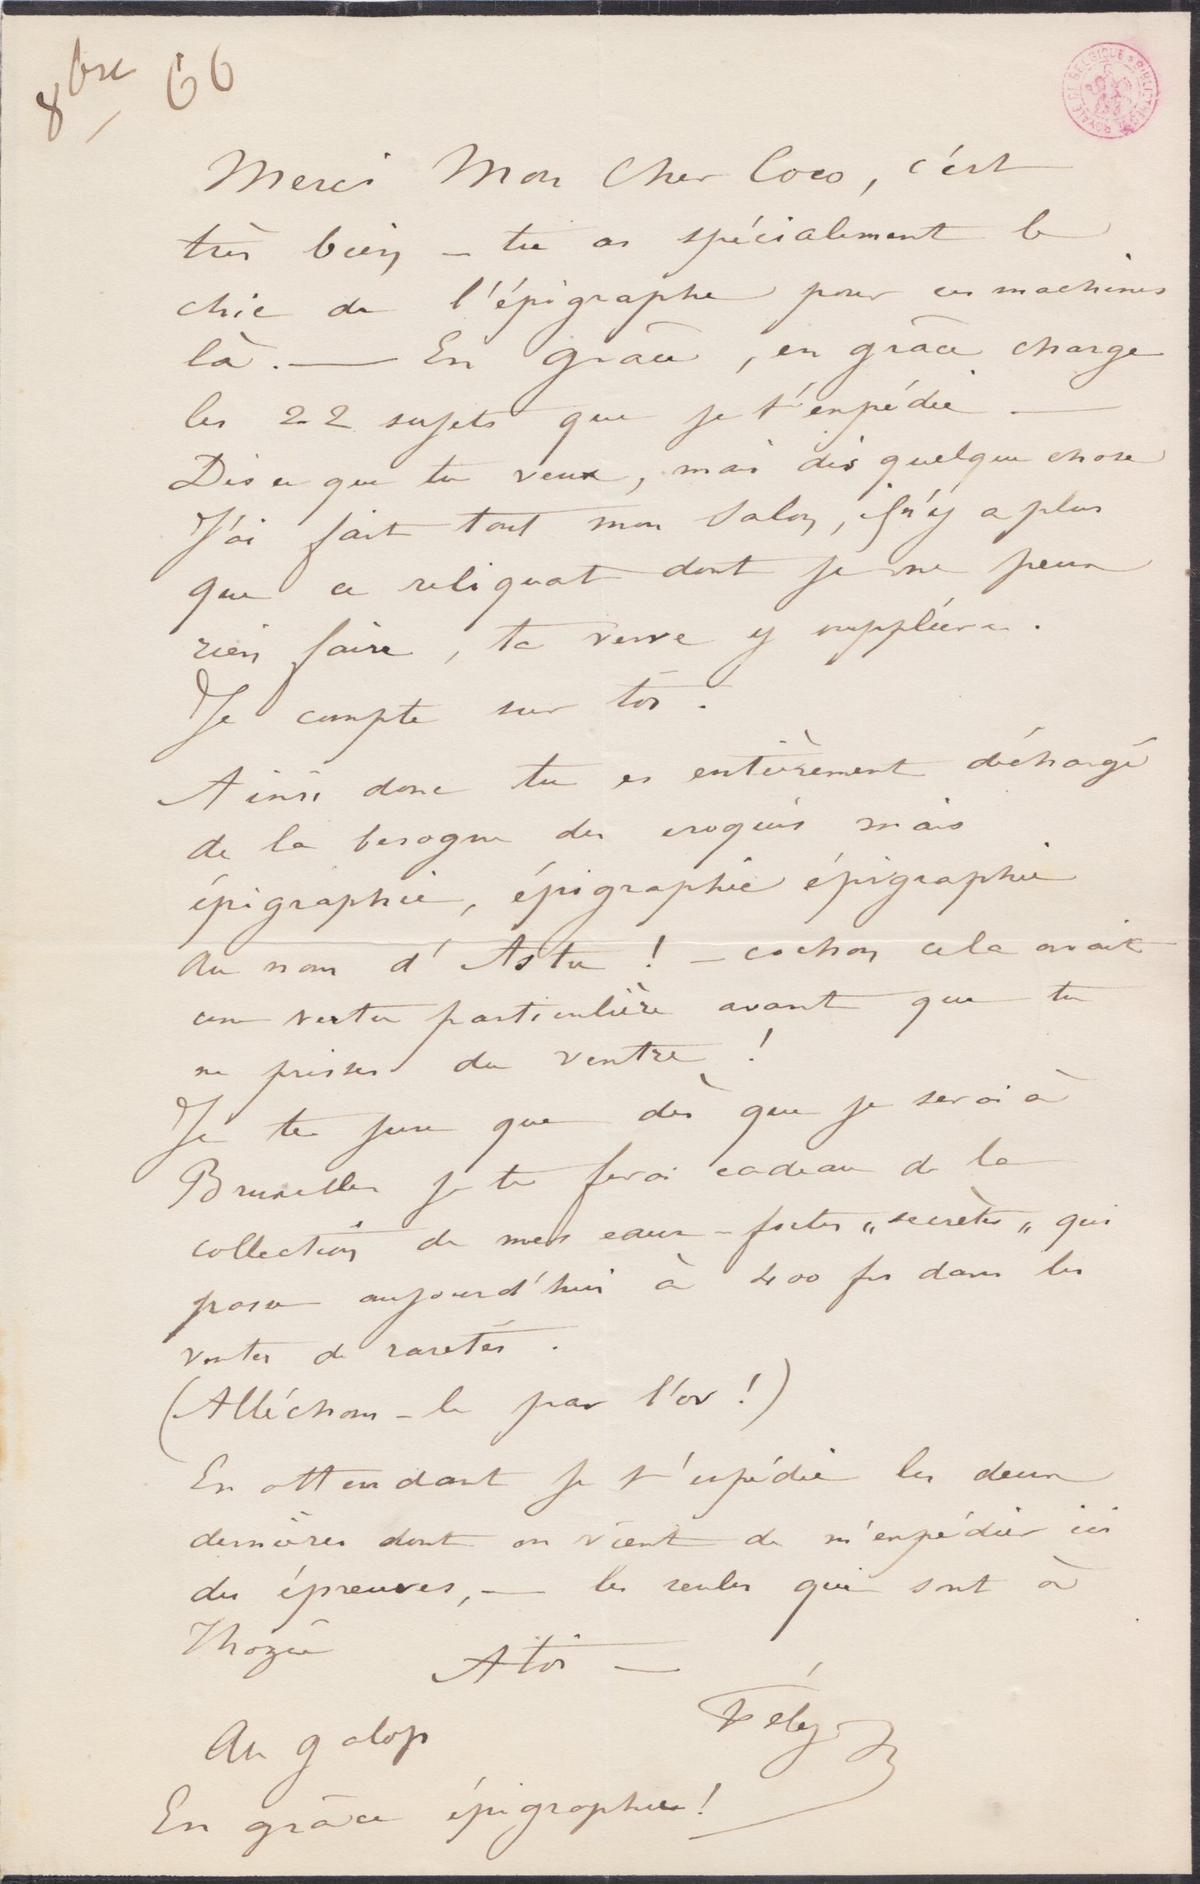 8bre 66
ROYALE DE BELGIQUE * BIBLIOTHEQUE
Merci Mon Cher Coco, c'est
très bien – tu as spécialement le
chic de l'épigraphe pour ces machines
là. — En grâce, en grâce charge
les 22 sujets que je t'expédie —
Dis ce que tu veux, mais dis quelque chose
J'ai fait tout mon Salon, il n'y a plus
que ce reliquat dont je ne peux
rien faire, ta verve y suppléera.
Je compte sur toi.
Ainsi donc tu es entièrement déchargé
de la besogne des croquis mais
épigraphie, épigraphie épigraphie
au nom d'Astu ! – cochon cela avait
une vertu particulière avant que tu
ne prisses du ventre !
Je te jure que dès que je serai à
Bruxelles je te ferai cadeau de la
collection de mes eaux-fortes „secrètes„ qui
pose aujourd'hui à 400 frs dans les
ventes de raretés.
(Alléchons-le par l'or !)
En attendant je t'expédie les deux
dernières dont on vient de m'expédier ici
des épreuves, — les seules qui sont à
Thozée
A toi —
Fély
Au galop
En grâce épigraphie !